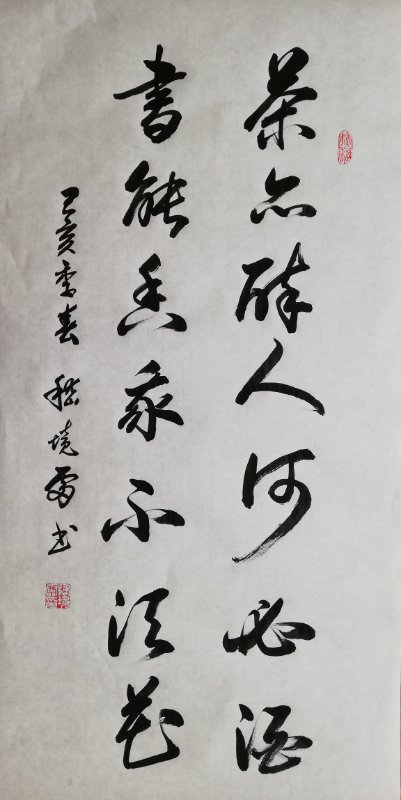 茶亦醉人何必酒
書能香我不须花
己亥季春 嵇境雷书